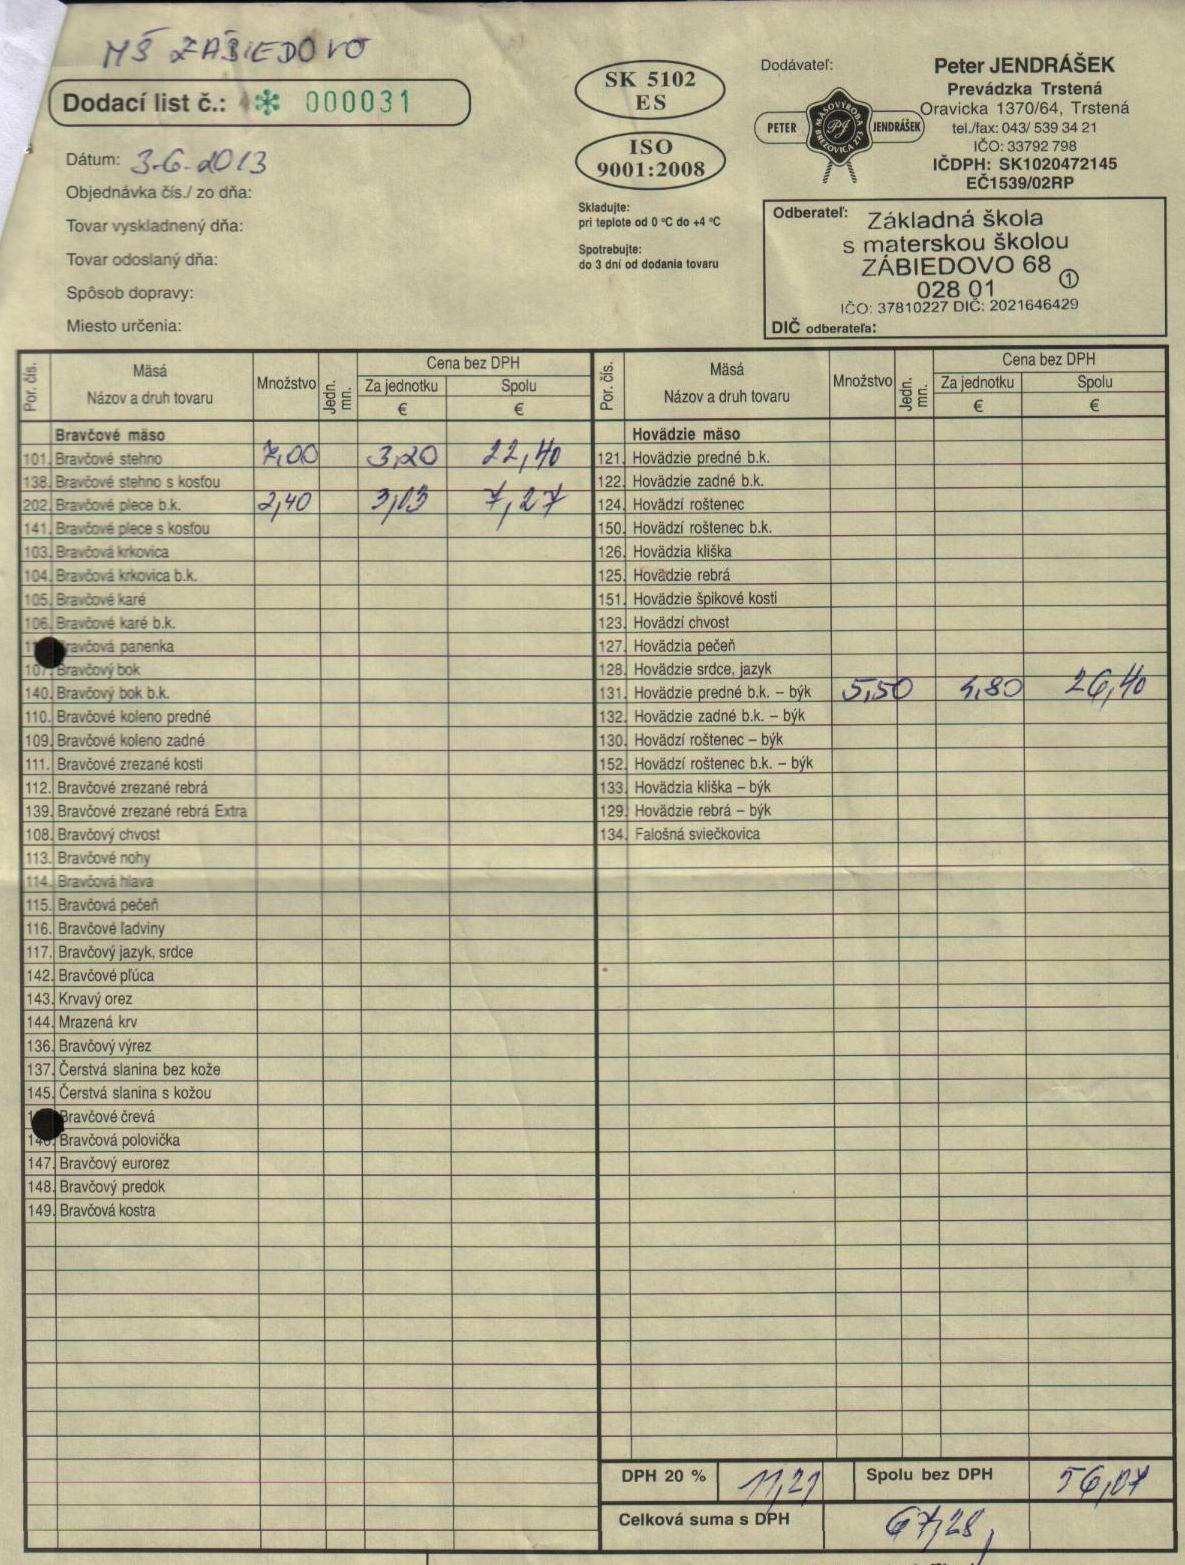 MŠ ZÁBIEDOVO
Dodací list č.: 000031
Dátum: 3.6.2013
Objednávka čís./ zo dňa:
Tovar vyskladnený dňa:
Tovar odoslaný dňa:
Spôsob dopravy:
Miesto určenia:
SK 5102
ES
ISO
9001:2008
Skladujte:
pri teplote od 0 °C do +4 °C
Spotrebujte:
do 3 dní od dodania tovaru
Dodávateľ:
PETER JENDRÁŠEK
MÄSOVÝROBA
PJ
BREZOVICA 273
Peter JENDRÁŠEK
Prevádzka Trstená
Oravicka 1370/64, Trstená
tel./fax: 043/ 539 34 21
IČO: 33792 798
IČDPH: SK1020472145
EČ1539/02RP
Odberateľ: Základná škola
s materskou školou
ZÁBIEDOVO 68
028 01 1
IČO: 37810227 DIČ: 2021646429
DIČ odberateľa:
Por. čís. Mäsá Názov a druh tovaru Množstvo Jedn. mn. Cena bez DPH Za jednotku € Spolu €
Bravčové mäso
101. Bravčové stehno 7,00 3,20 22,40
138. Bravčové stehno s kosťou
202. Bravčové plece b.k. 2,40 3,03 7,27
141. Bravčové plece s kosťou
103. Bravčová krkovica
104. Bravčová krkovica b.k.
105. Bravčové karé
106. Bravčové karé b.k.
Bravčová panenka
107. Bravčový bok
140. Bravčový bok b.k.
110. Bravčové koleno predné
109. Bravčové koleno zadné
111. Bravčové zrezané kosti
112. Bravčové zrezané rebrá
139. Bravčové zrezané rebrá Extra
108. Bravčový chvost
113. Bravčové nohy
114. Bravčová hlava
115. Bravčová pečeň
116. Bravčové ľadviny
117. Bravčový jazyk, srdce
142. Bravčové pľúca
143. Krvavý orez
144. Mrazená krv
136. Bravčový výrez
137. Čerstvá slanina bez kože
145. Čerstvá slanina s kožou
Bravčové črevá
146. Bravčová polovička
147. Bravčový eurorez
148. Bravčový predok
149. Bravčová kostra
Por. čís. Mäsá Názov a druh tovaru Množstvo Jedn. mn. Cena bez DPH Za jednotku € Spolu €
Hovädzie mäso
121. Hovädzie predné b.k.
122. Hovädzie zadné b.k.
124. Hovädzí roštenec
150. Hovädzí roštenec b.k.
126. Hovädzia kliška
125. Hovädzie rebrá
151. Hovädzie špikové kosti
123. Hovädzí chvost
127. Hovädzia pečeň
128. Hovädzie srdce, jazyk
131. Hovädzie predné b.k. – býk 5,50 4,80 26,40
132. Hovädzie zadné b.k. – býk
130. Hovädzí roštenec – býk
152. Hovädzí roštenec b.k. – býk
133. Hovädzia kliška – býk
129. Hovädzie rebrá – býk
134. Falošná sviečkovica
DPH 20 % 11,21 Spolu bez DPH 56,07
Celková suma s DPH 67,28